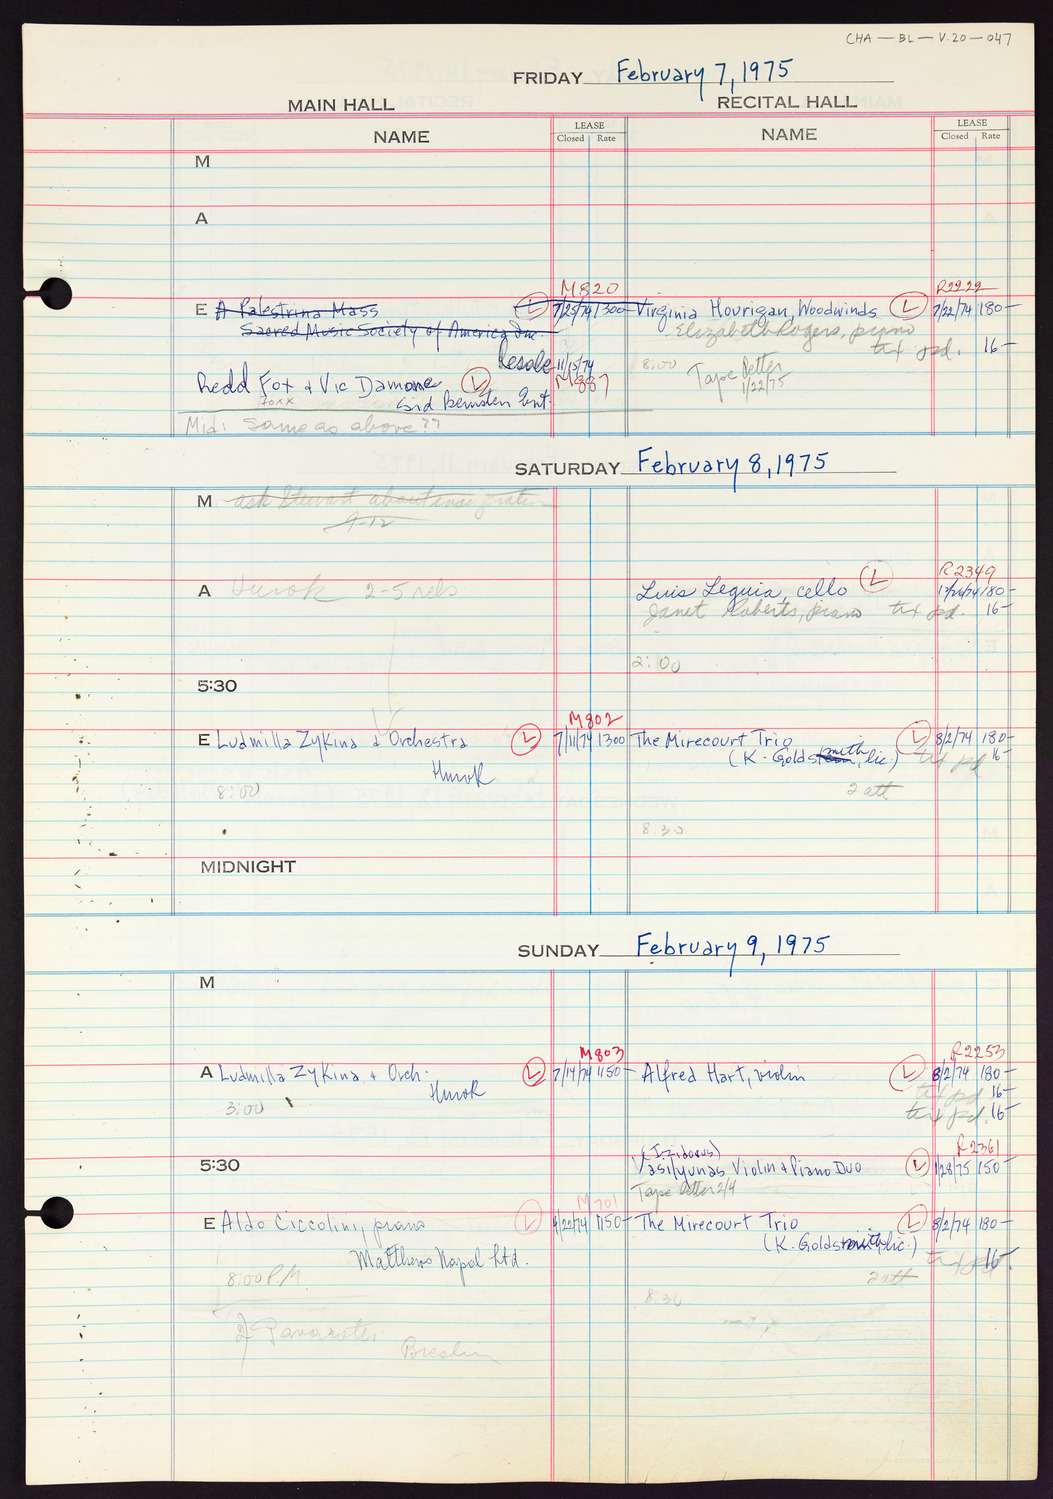 CHA — BL — V.20 — 047
FRIDAY February 7, 1975
MAIN HALL RECITAL HALL
NAME LEASE Closed Rate NAME LEASE Closed Rate
M
A
M820 R2222
E A Palestrina Mass L 7/25/74 1300 Virginia Hourigan, Woodwinds L 7/22/74 180—
Sacred Music Society of America Inc. Elizabeth Rogers, piano
txt pd. 16—
Resale 11/15/74 8:00 Tape letter
Redd Fox + Vic Damone L M887 1/22/75
foxx Sid Bernstein Ent.
Mid: Same as above??
SATURDAY February 8, 1975
M ask Stewart about
9-12
R2349
A Hurok 2-5 rehs Luis Leguia, cello L 180—
Janet Roberts, piano txt pd. 16—
2:00
5:30
M802
E Ludmilla Zykina & Orchestra L 7/11/74 1300 The Mirecourt Trio L 8/2/74 180—
Hurok (K. Goldsmith, lic.) txt pd 16—
8:00 2 att
8:30
MIDNIGHT
SUNDAY February 9, 1975
M
M803 R2253
A Ludmilla Zykina + Orch. L 7/14/74 1150— Alfred Hart, violin L 8/2/74 180—
Hurok txt pd 16—
3:00 txt pd. 16—
(Izidorus) R2361
5:30 Vasilyunas Violin & Piano Duo L 1/28/75 150—
Tape letter 2/4
M701
E Aldo Ciccolini, piano L 4/22/74 1150— The Mirecourt Trio L 8/2/74 180—
Matthews Napal Ltd. (K. Goldsmith, lic.) txt pd 16—
8:00 P.M. 2 att
8:30
Pavarotti
Breslin